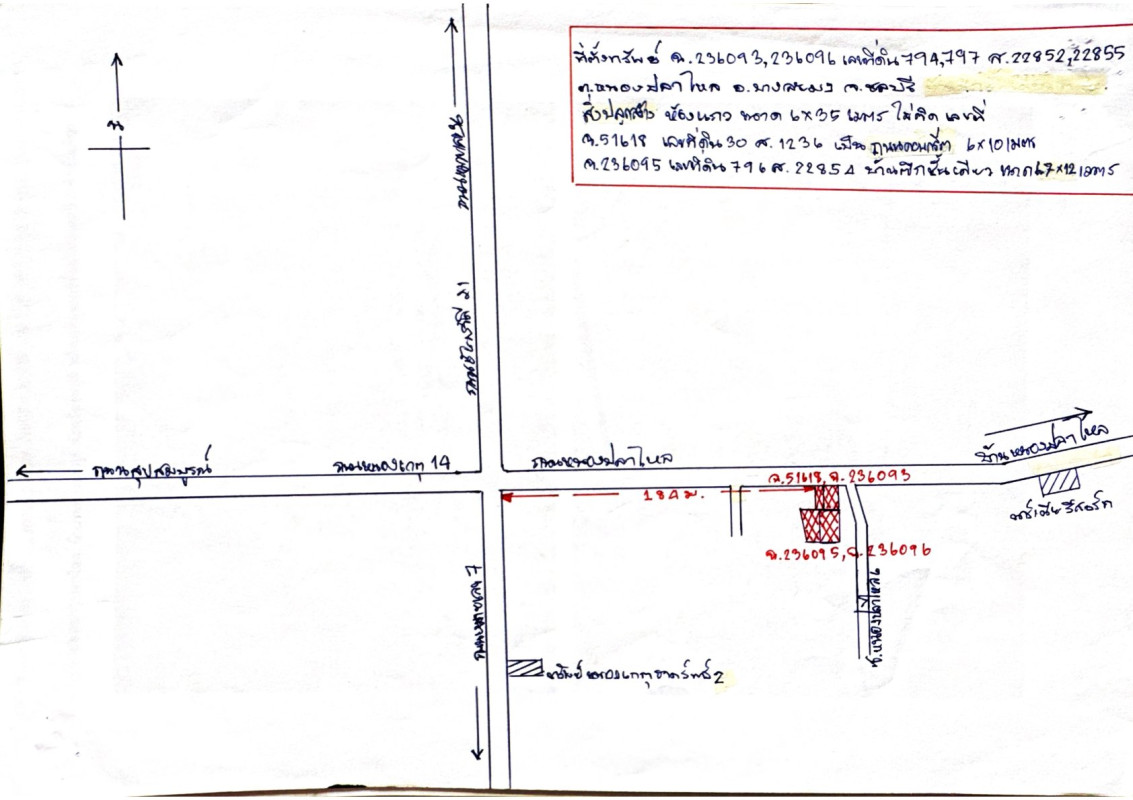 ที่ตั้งทรัพย์ ฉ.236093,236096 เลขที่ดิน 794,797 ส.22852,22855
ต.หนองปลาไหล อ.บางละมุง จ.ชลบุรี
สิ่งปลูกสร้าง ห้องแถว ขนาด 6×35 เมตร ไม่คิด เลขที่
ฉ.51618 เลขที่ดิน 30 ส.1236 เป็น ถนนคอนกรีต 6×10 เมตร
ฉ.236095 เลขที่ดิน 796 ส.22854 บ้านตึกชั้นเดียว ขนาด 67×12 เมตร
น
ถนนชัยพรวิถี 21
ถนนสุขสมบูรณ์
ถนนหนองเกตุ 14
ถนนหนองปลาไหล
บ้านหนองปลาไหล
184 ม.
ฉ.51618, ฉ.236093
ฉ.236095, ฉ.236096
รีสอร์ท
ซ.หนองปลาไหล 6
2